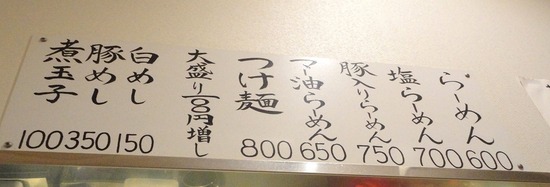 らーめん 600
塩らーめん 700
豚入りらーめん 750
マー油らーめん 650
つけ麺 800
大盛り100円増し
白めし 150
豚めし 350
煮玉子 100